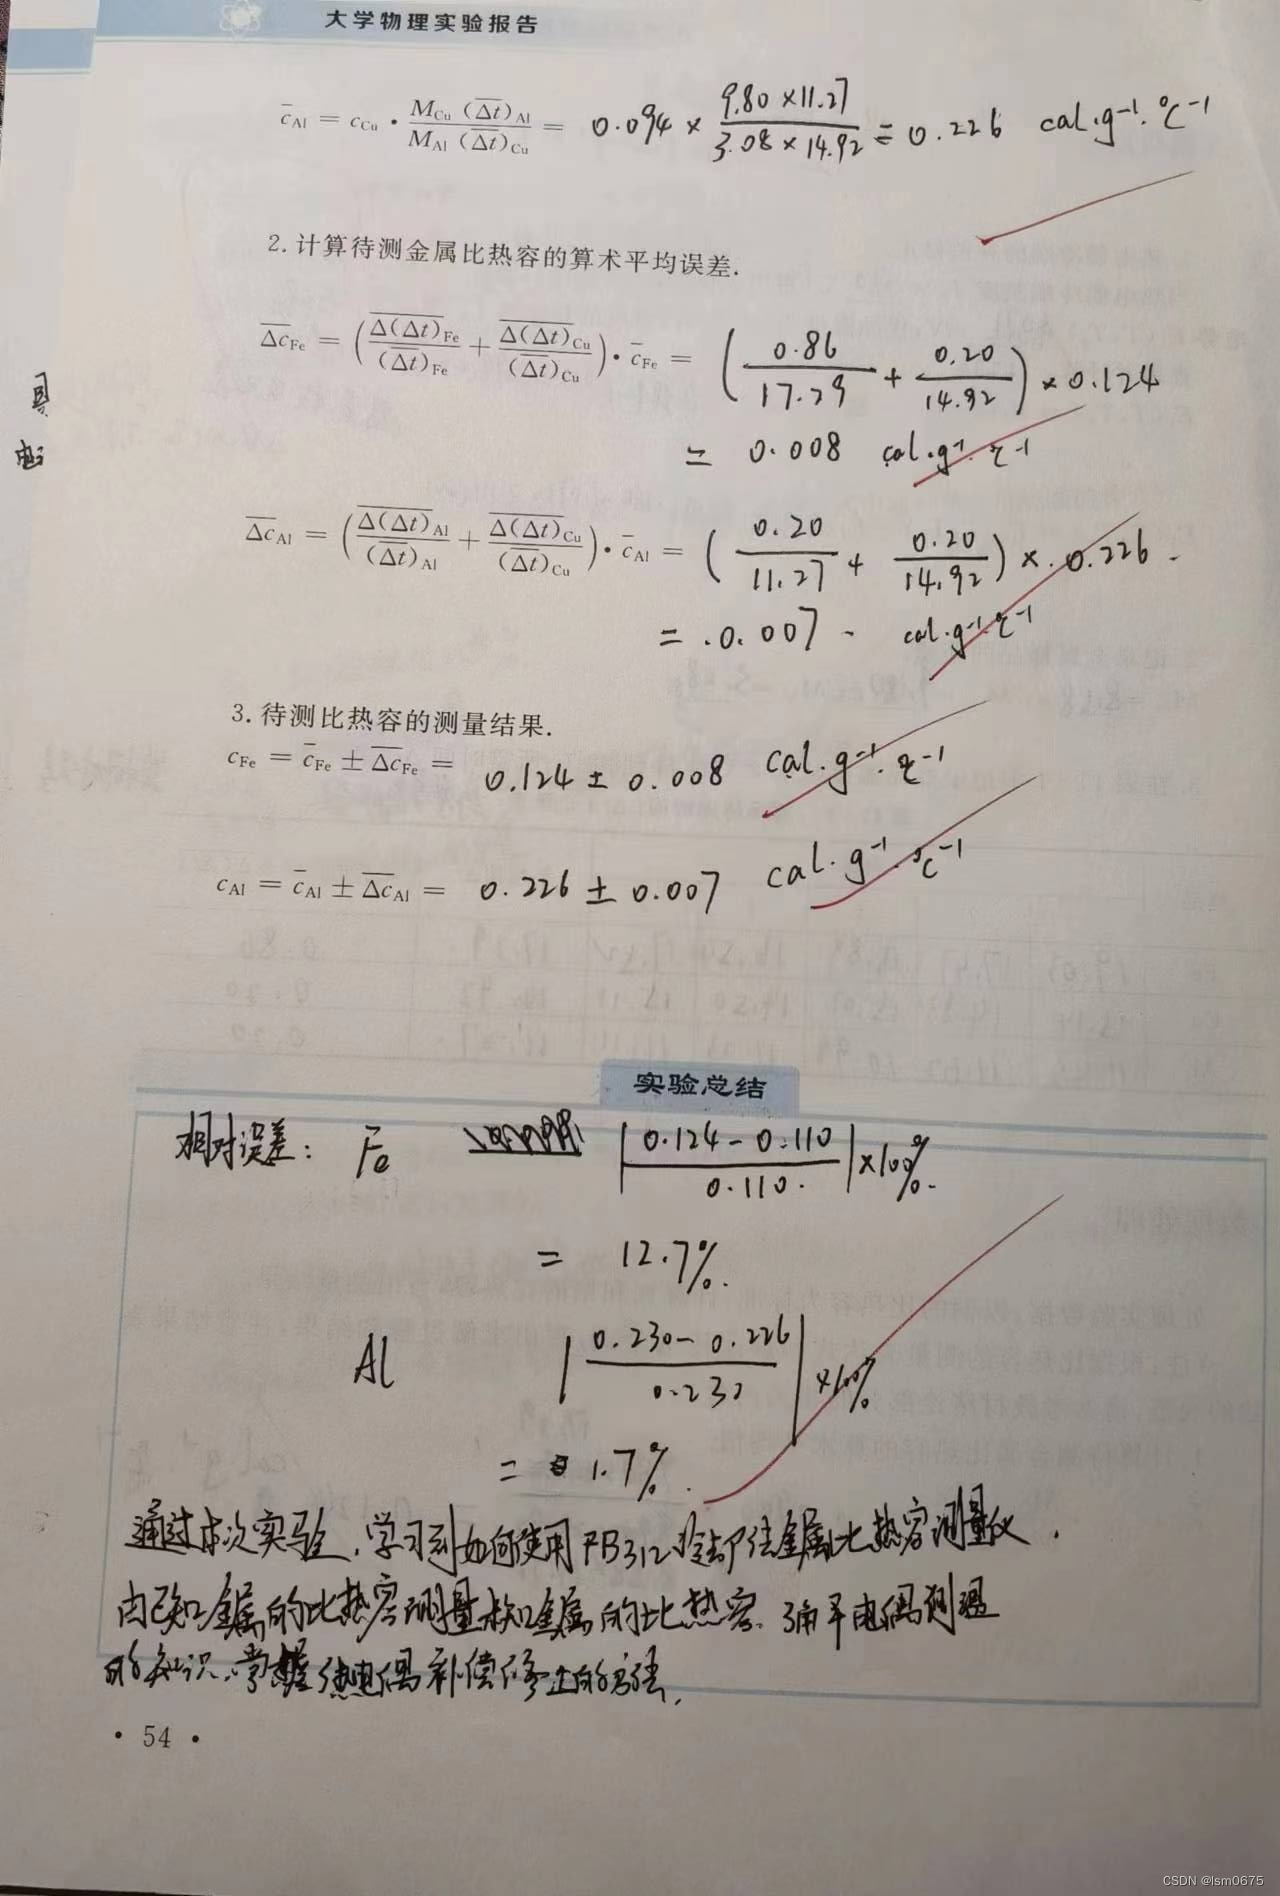 大学物理实验报告
c̄Al = cCu · MCu (Δt)Al / MAl (Δt)Cu = 0.094 × 9.80 × 11.27 / 3.08 × 14.92 = 0.226 cal·g⁻¹·℃⁻¹
2. 计算待测金属比热容的算术平均误差.
ΔcFe = (Δ(Δt)Fe / (Δt)Fe + Δ(Δt)Cu / (Δt)Cu) · c̄Fe = (0.86 / 17.29 + 0.20 / 14.92) × 0.124
= 0.008 cal·g⁻¹·℃⁻¹
ΔcAl = (Δ(Δt)Al / (Δt)Al + Δ(Δt)Cu / (Δt)Cu) · c̄Al = (0.20 / 11.27 + 0.20 / 14.92) × 0.226
= 0.007 cal·g⁻¹·℃⁻¹
3. 待测比热容的测量结果.
cFe = c̄Fe ± ΔcFe = 0.124 ± 0.008 cal·g⁻¹·℃⁻¹
cAl = c̄Al ± ΔcAl = 0.226 ± 0.007 cal·g⁻¹·℃⁻¹
实验总结
相对误差: Fe |0.124 - 0.110 / 0.110| × 100%
= 12.7%
Al |0.230 - 0.226 / 0.230| × 100%
= 1.7%
通过本次实验, 学习到如何使用FB312冷却法金属比热容测量仪,
由已知金属的比热容测量未知金属的比热容. 了解电偶测温
的知识, 掌握热电偶补偿修正的方法.
· 54 ·
CSDN @lsm0675